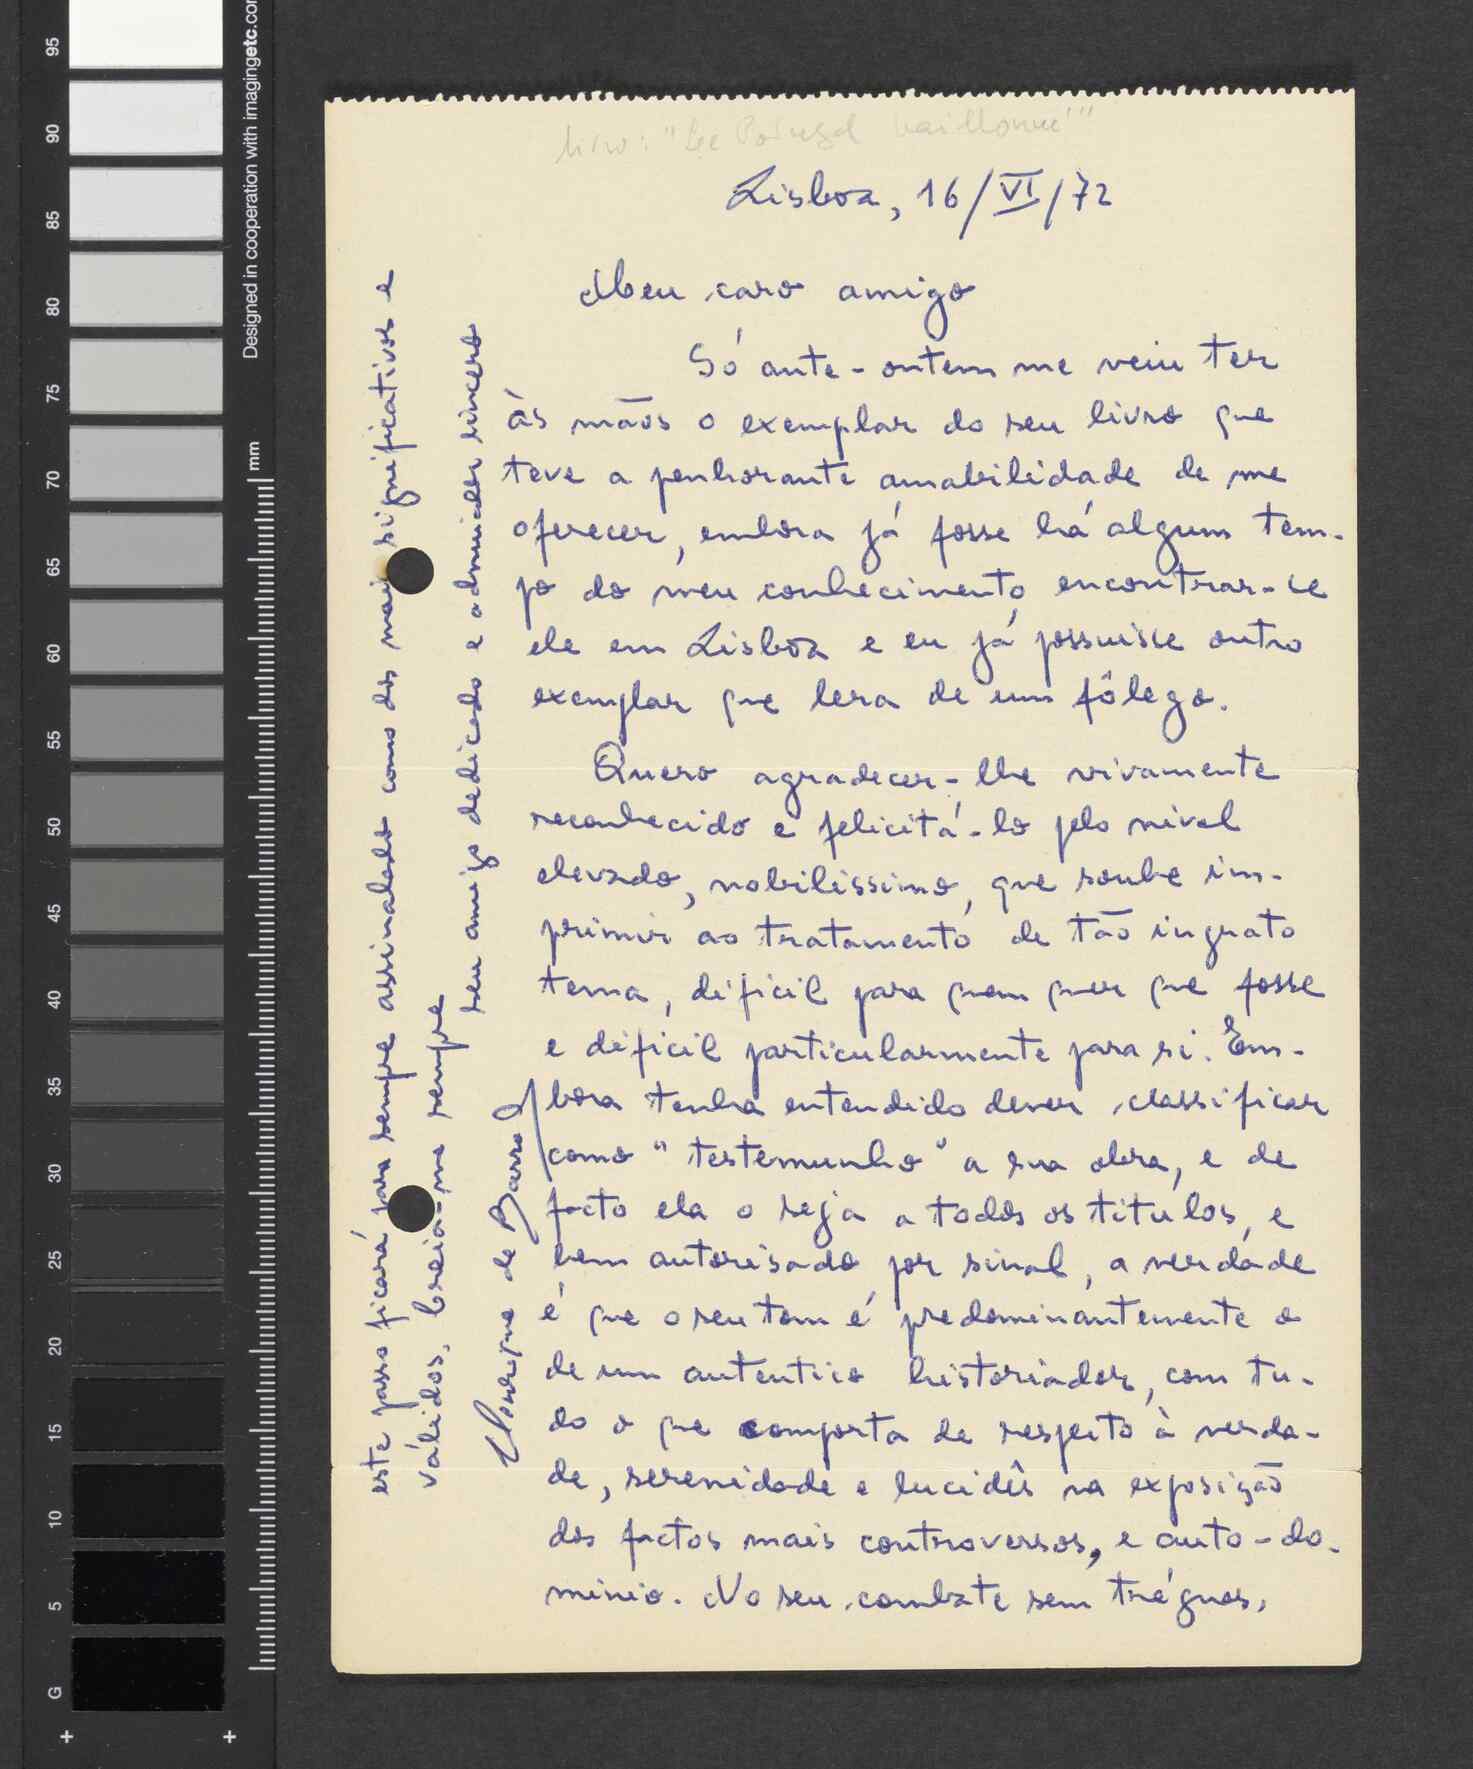 livro: "Le Portugal baillonné"
Lisboa, 16/VI/72
Meu caro amigo
Só ante-ontem me veiu ter
às mãos o exemplar do seu livro que
teve a penhorante amabilidade de me
oferecer, embora já fosse há algum tem-
po do meu conhecimento encontrar-se
ele em Lisboa e eu já possuisse outro
exemplar que lera de um fôlego.
Quero agradecer-lhe vivamente
reconhecido e felicitá-lo pelo nível
elevado, nobilissimo, que soube im-
primir ao tratamento de tão ingrato
tema, dificil para quem quer que fosse
e dificil particularmente para si. Em-
bora tenha entendido dever classificar
como "testemunho" a sua obra, e de
facto ela o seja a todos os titulos, e
bem autorisado por sinal, a verdade
é que o seu tom é predominantemente o
de um autentico historiador, com tu-
do o que comporta de respeito à verda-
de, serenidade e lucidês na exposição
dos factos mais controversos, e auto-do-
minio. No seu combate sem tréguas,
este passo ficará para sempre assinalado como dos mais significativos e
válidos. Creia-me sempre
seu amigo dedicado e admirador sincero
Henrique de Barros
95
90
85
80
75
70
65
60
55
50
45
40
35
30
25
20
15
10
5
G
mm
Designed in cooperation with imagingetc.com